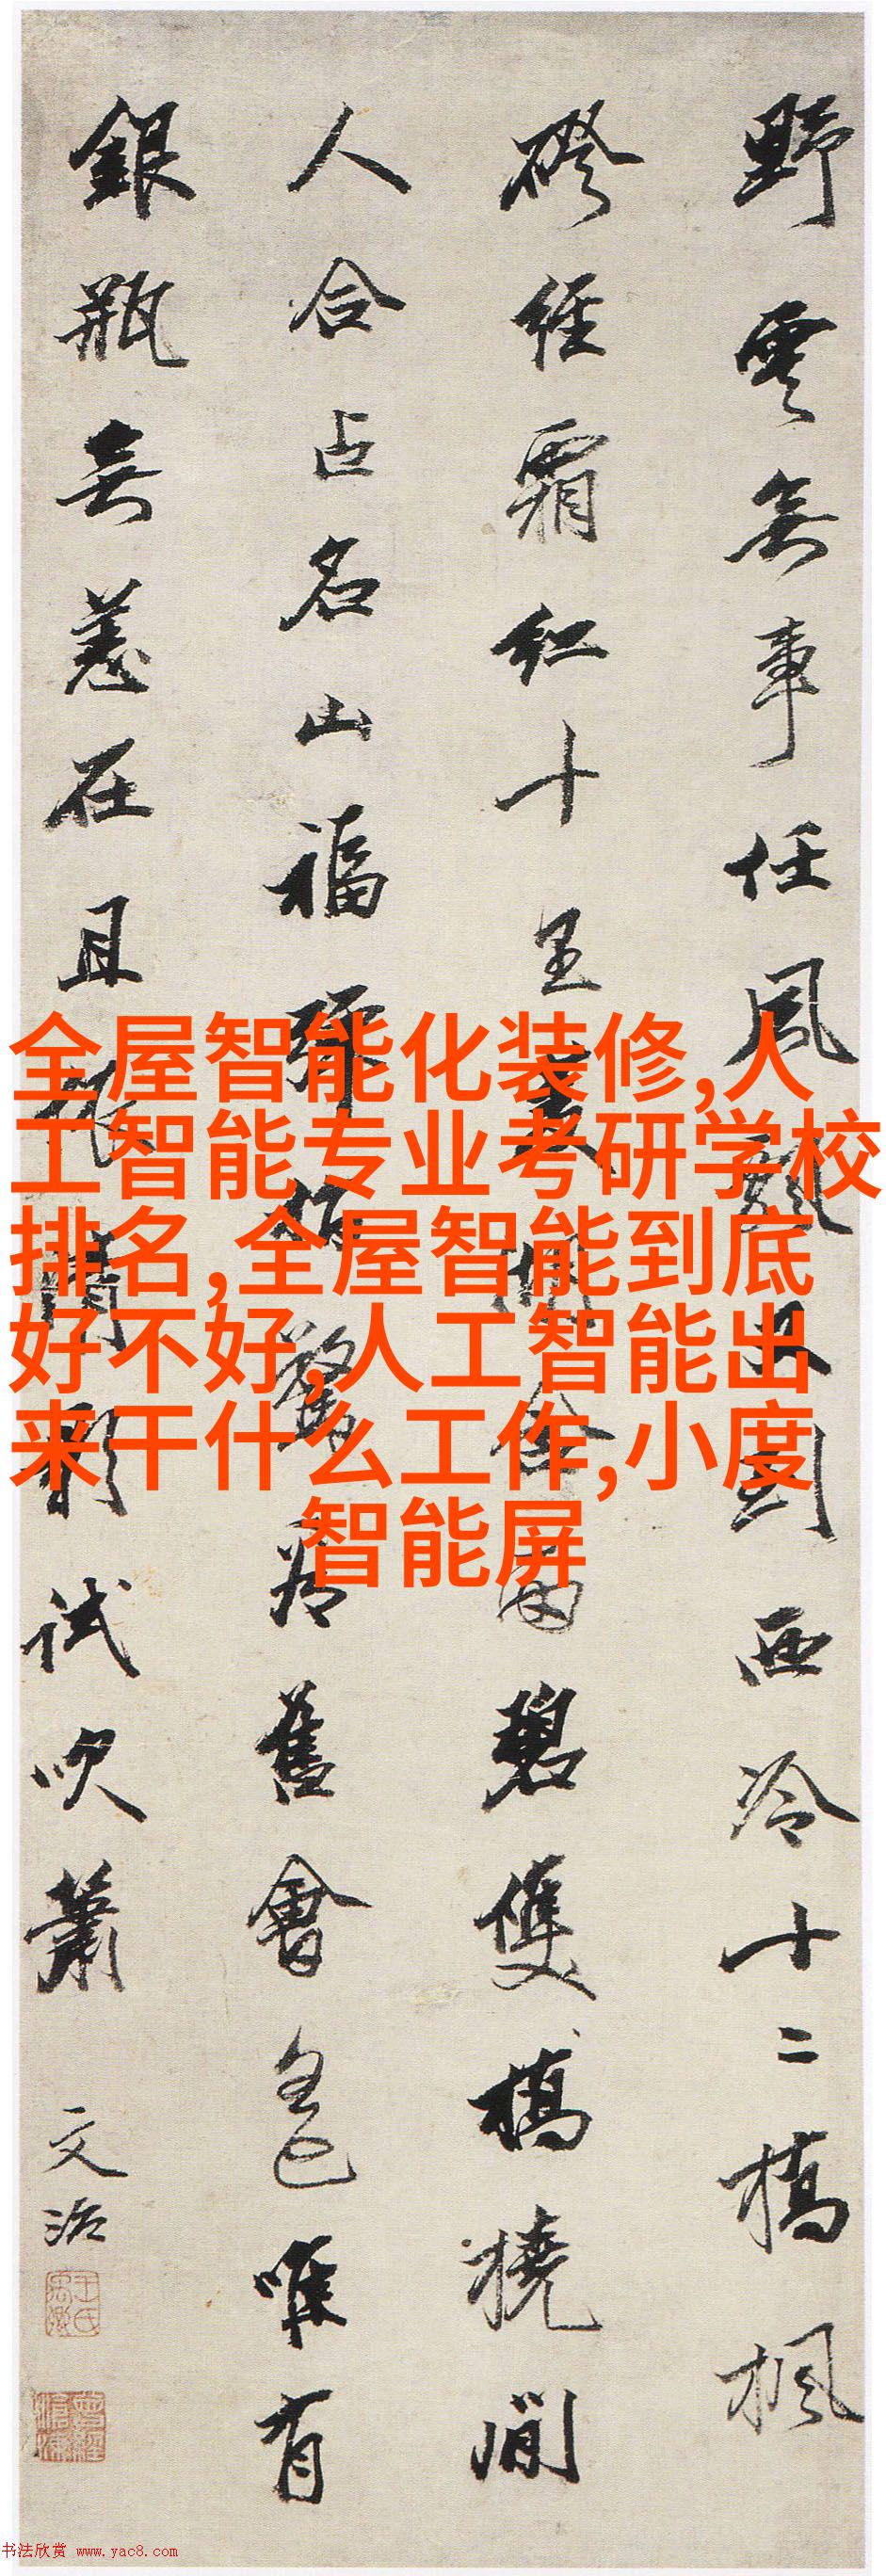 野雲無事任風飄又到西泠十二橋楓
磴經霜紅十里湖金雨碧雙橋撓闌
人合占名山福弥鶯為舊會全已唯有
銀瓶無恙在且情影試吹簫
文治
全屋智能化装修,人
工智能专业考研学校
排名,全屋智能到底
好不好,人工智能出
来干什么工作,小度
智能屏
书法欣赏 www.yac8.com